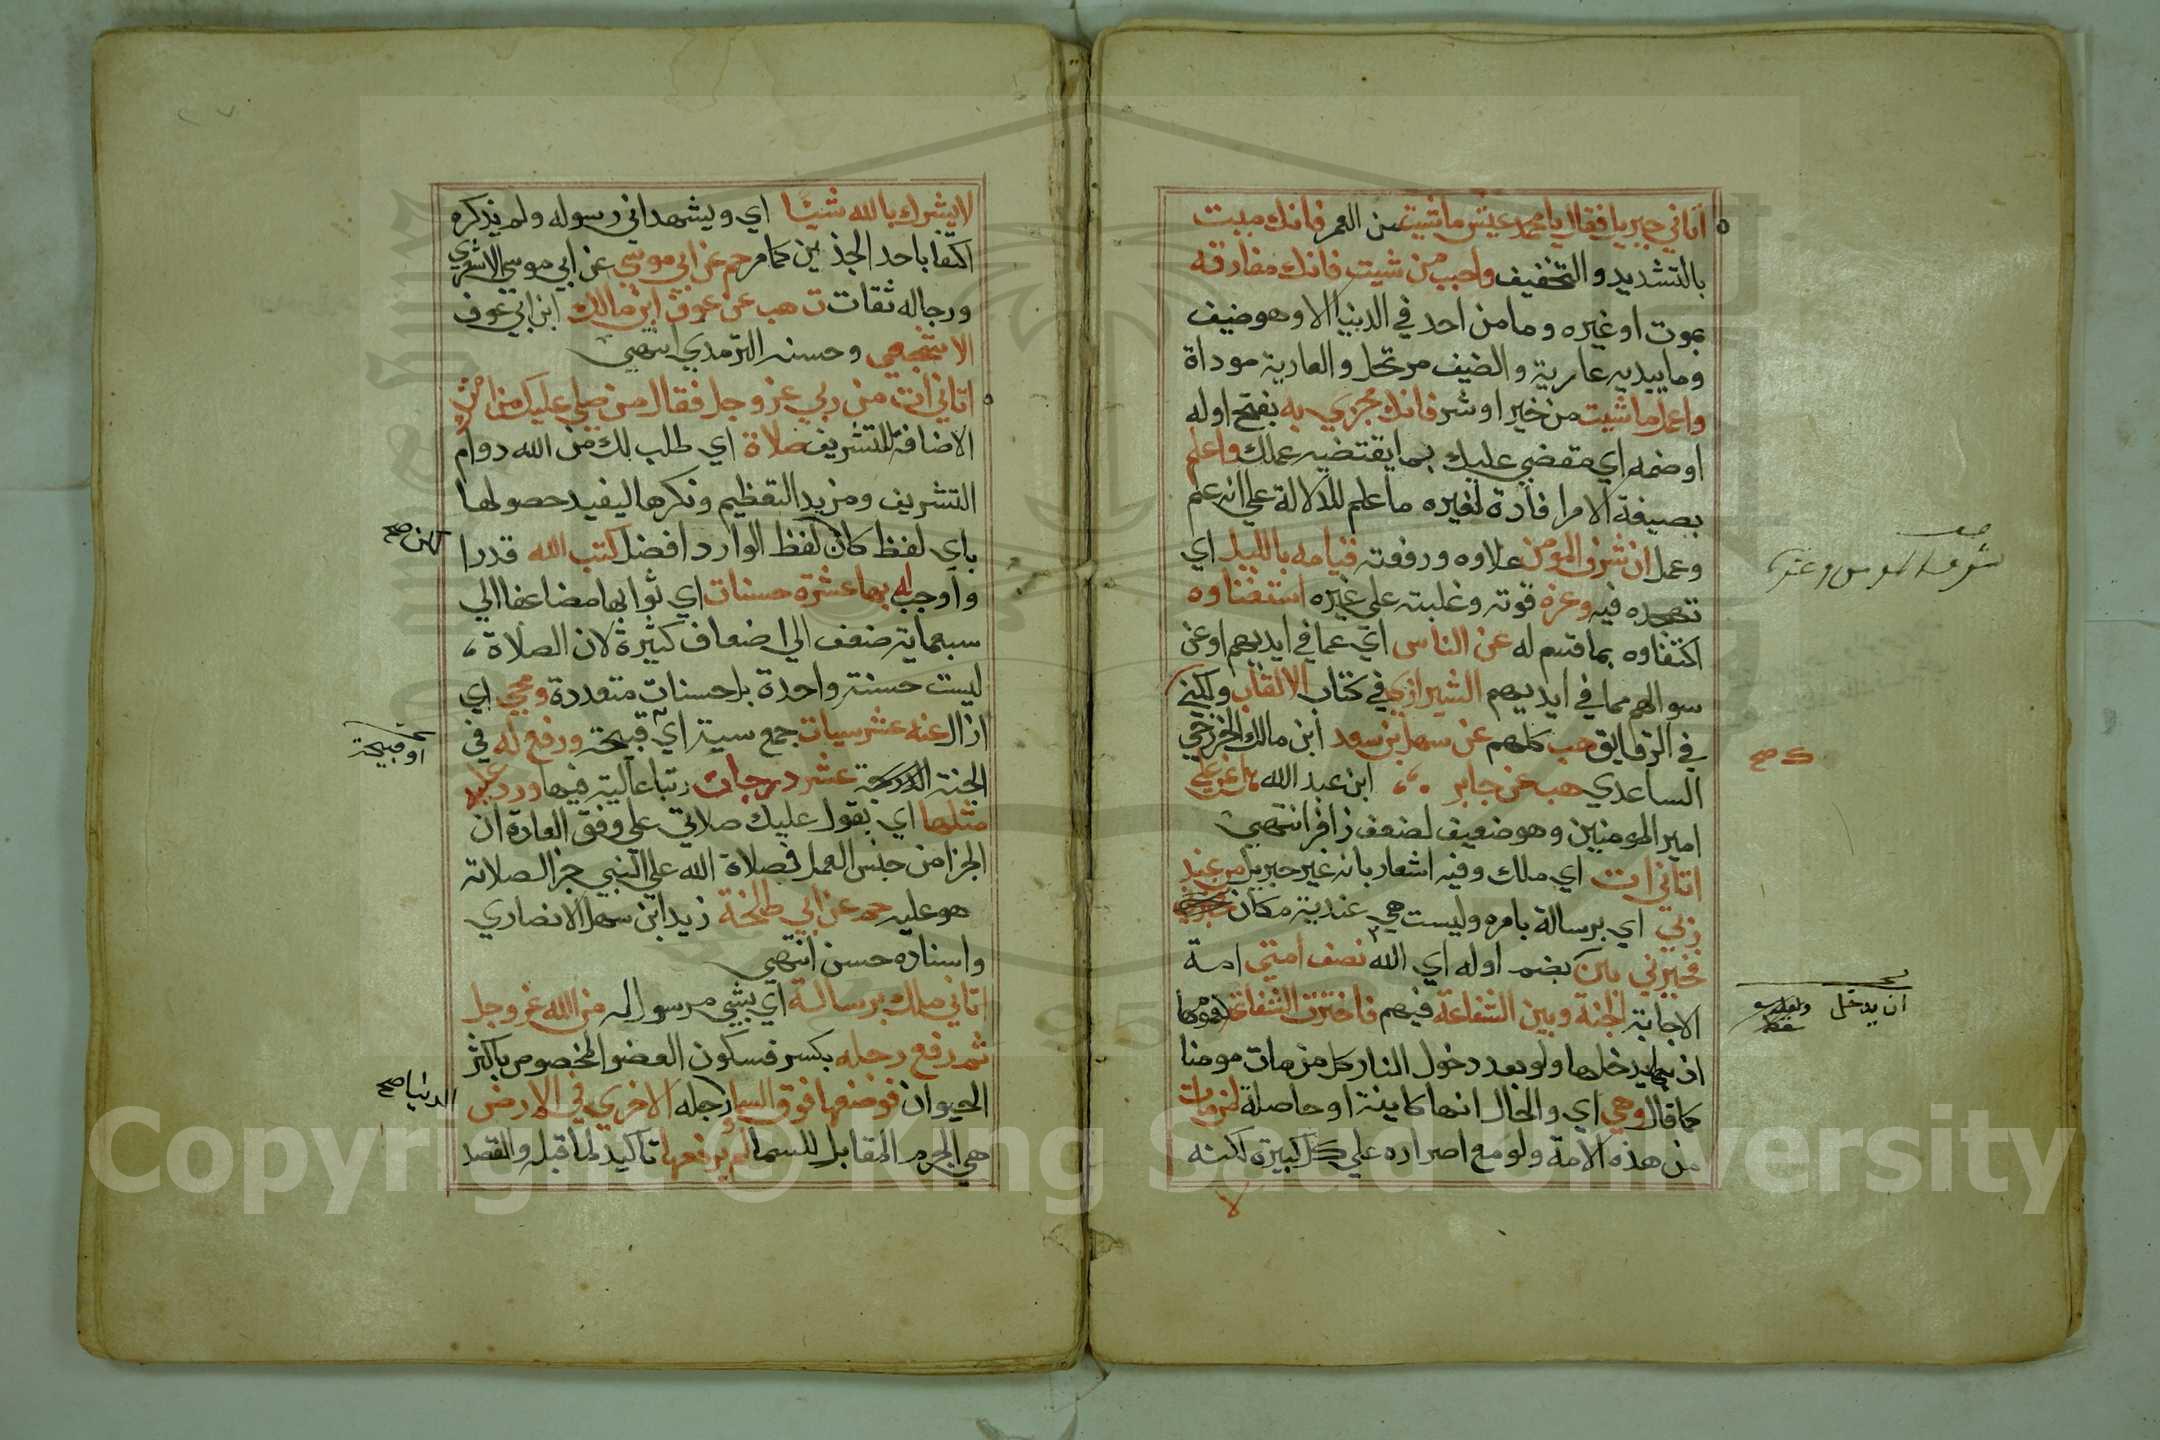 اتاني جبريل فقال يا محمد عش ما شيت من العمر فانك ميت
بالتشديد والتخفيف واحبب من شيت فانك مفارقه
بموت او غيره وما من احد في الدنيا الا وهو ضيف
وما بيديه عارية والضيف مرتحل والعارية موداة
واعمل ما شيت من خير او شر فانك مجزي به بفتح اوله
او ضمه اي مقضي عليك بما يقتضيه عملك واعلم
بصيغة الامر افادة لغيره ما علم للدلالة علي انه علم
وعمل ان شرف المومن علاوه ورفعته قيامه بالليل اي
تهجده فيه وعزه قوته وغلبته علي غيره استغناوه
اكتفاوه بما قسم له عن الناس اي عما في ايديهم او عن
سوالهم مما في ايديهم الشيرازي في كتاب الالقاب ولكني
في الرقايق هب كلهم عن سهل بن سعد ابن مالك الخزرجي
الساعدي هب عن جابر ابن عبد الله عن علي
امير المومنين وهو ضعيف لضعف زافر انتهي
اتاني ات اي ملك وفيه اشعار بانه غير جبريل من عند
ربي اي برسالة بامره وليست هي عندية مكان
فخيرني بين بضم اوله اي الله نصف امتي امة
الاجابة الجنة وبين الشفاعة فيهم فاخترت الشفاعة لعمومها
اذ بها يدخلها ولو بعد دخول النار كل من مات مومنا
كما قال وهي اي والحال انها كاينة او حاصلة لمن مات
من هذه الامة ولو مع اصراره علي كل كبيرة لكنه
ان يدخل
لا يشرك بالله شيئا اي ويشهد اني رسوله ولم يذكره
اكتفا باحد الجذين كما مر حم عن ابي موسي عن ابي موسي الاشعري
ورجاله ثقات ت هب عن عوف ابن مالك ابن ابي عوف
الاشجعي وحسنه الترمذي انتهي
اتاني ات من ربي عز وجل فقال من صلي عليك من امتك
الاضافة للتشريف صلاة اي طلب لك من الله دوام
التشريف ومزيد التعظيم ونكرها ليفيد حصولها
باي لفظ كان لكن لفظ الوارد افضل كتب الله قدر ا
و اوجب له بها عشرة حسنات اي ثوابها مضاعفا الي
سبعماية ضعف الي اضعاف كثيرة لان الصلاة
ليست حسنة واحدة بل حسنات متعددة ومحي اي
ازال عنه عشر سيات جمع سية اي قبيحة ورفع له في
الجنة الدرجة عشر درجات رتبا عالية فيها ورد عليه
مثلها اي يقول عليك صلاتي علي وفق العادة ان
الجزا من جنس العمل فصلاة الله علي النبي جزا لصلاته
هو عليه حم عن ابي طلحة زيد ابن سهل الانصاري
واسناده حسن انتهي
اتاني ملك برسالة اي بشي مرسول له من الله عز وجل
ثم رفع رجله بكسر فسكون العضو المخصوص باكثر
الحيوان فوضعها فوق السما رجله الاخري في الارض
هي الجرم المقابل للسما لم يرفعها تاكيد لما قبله والقصد
لكن صح
او قبيحة
الدنيا صح
Copyright © King Saud University